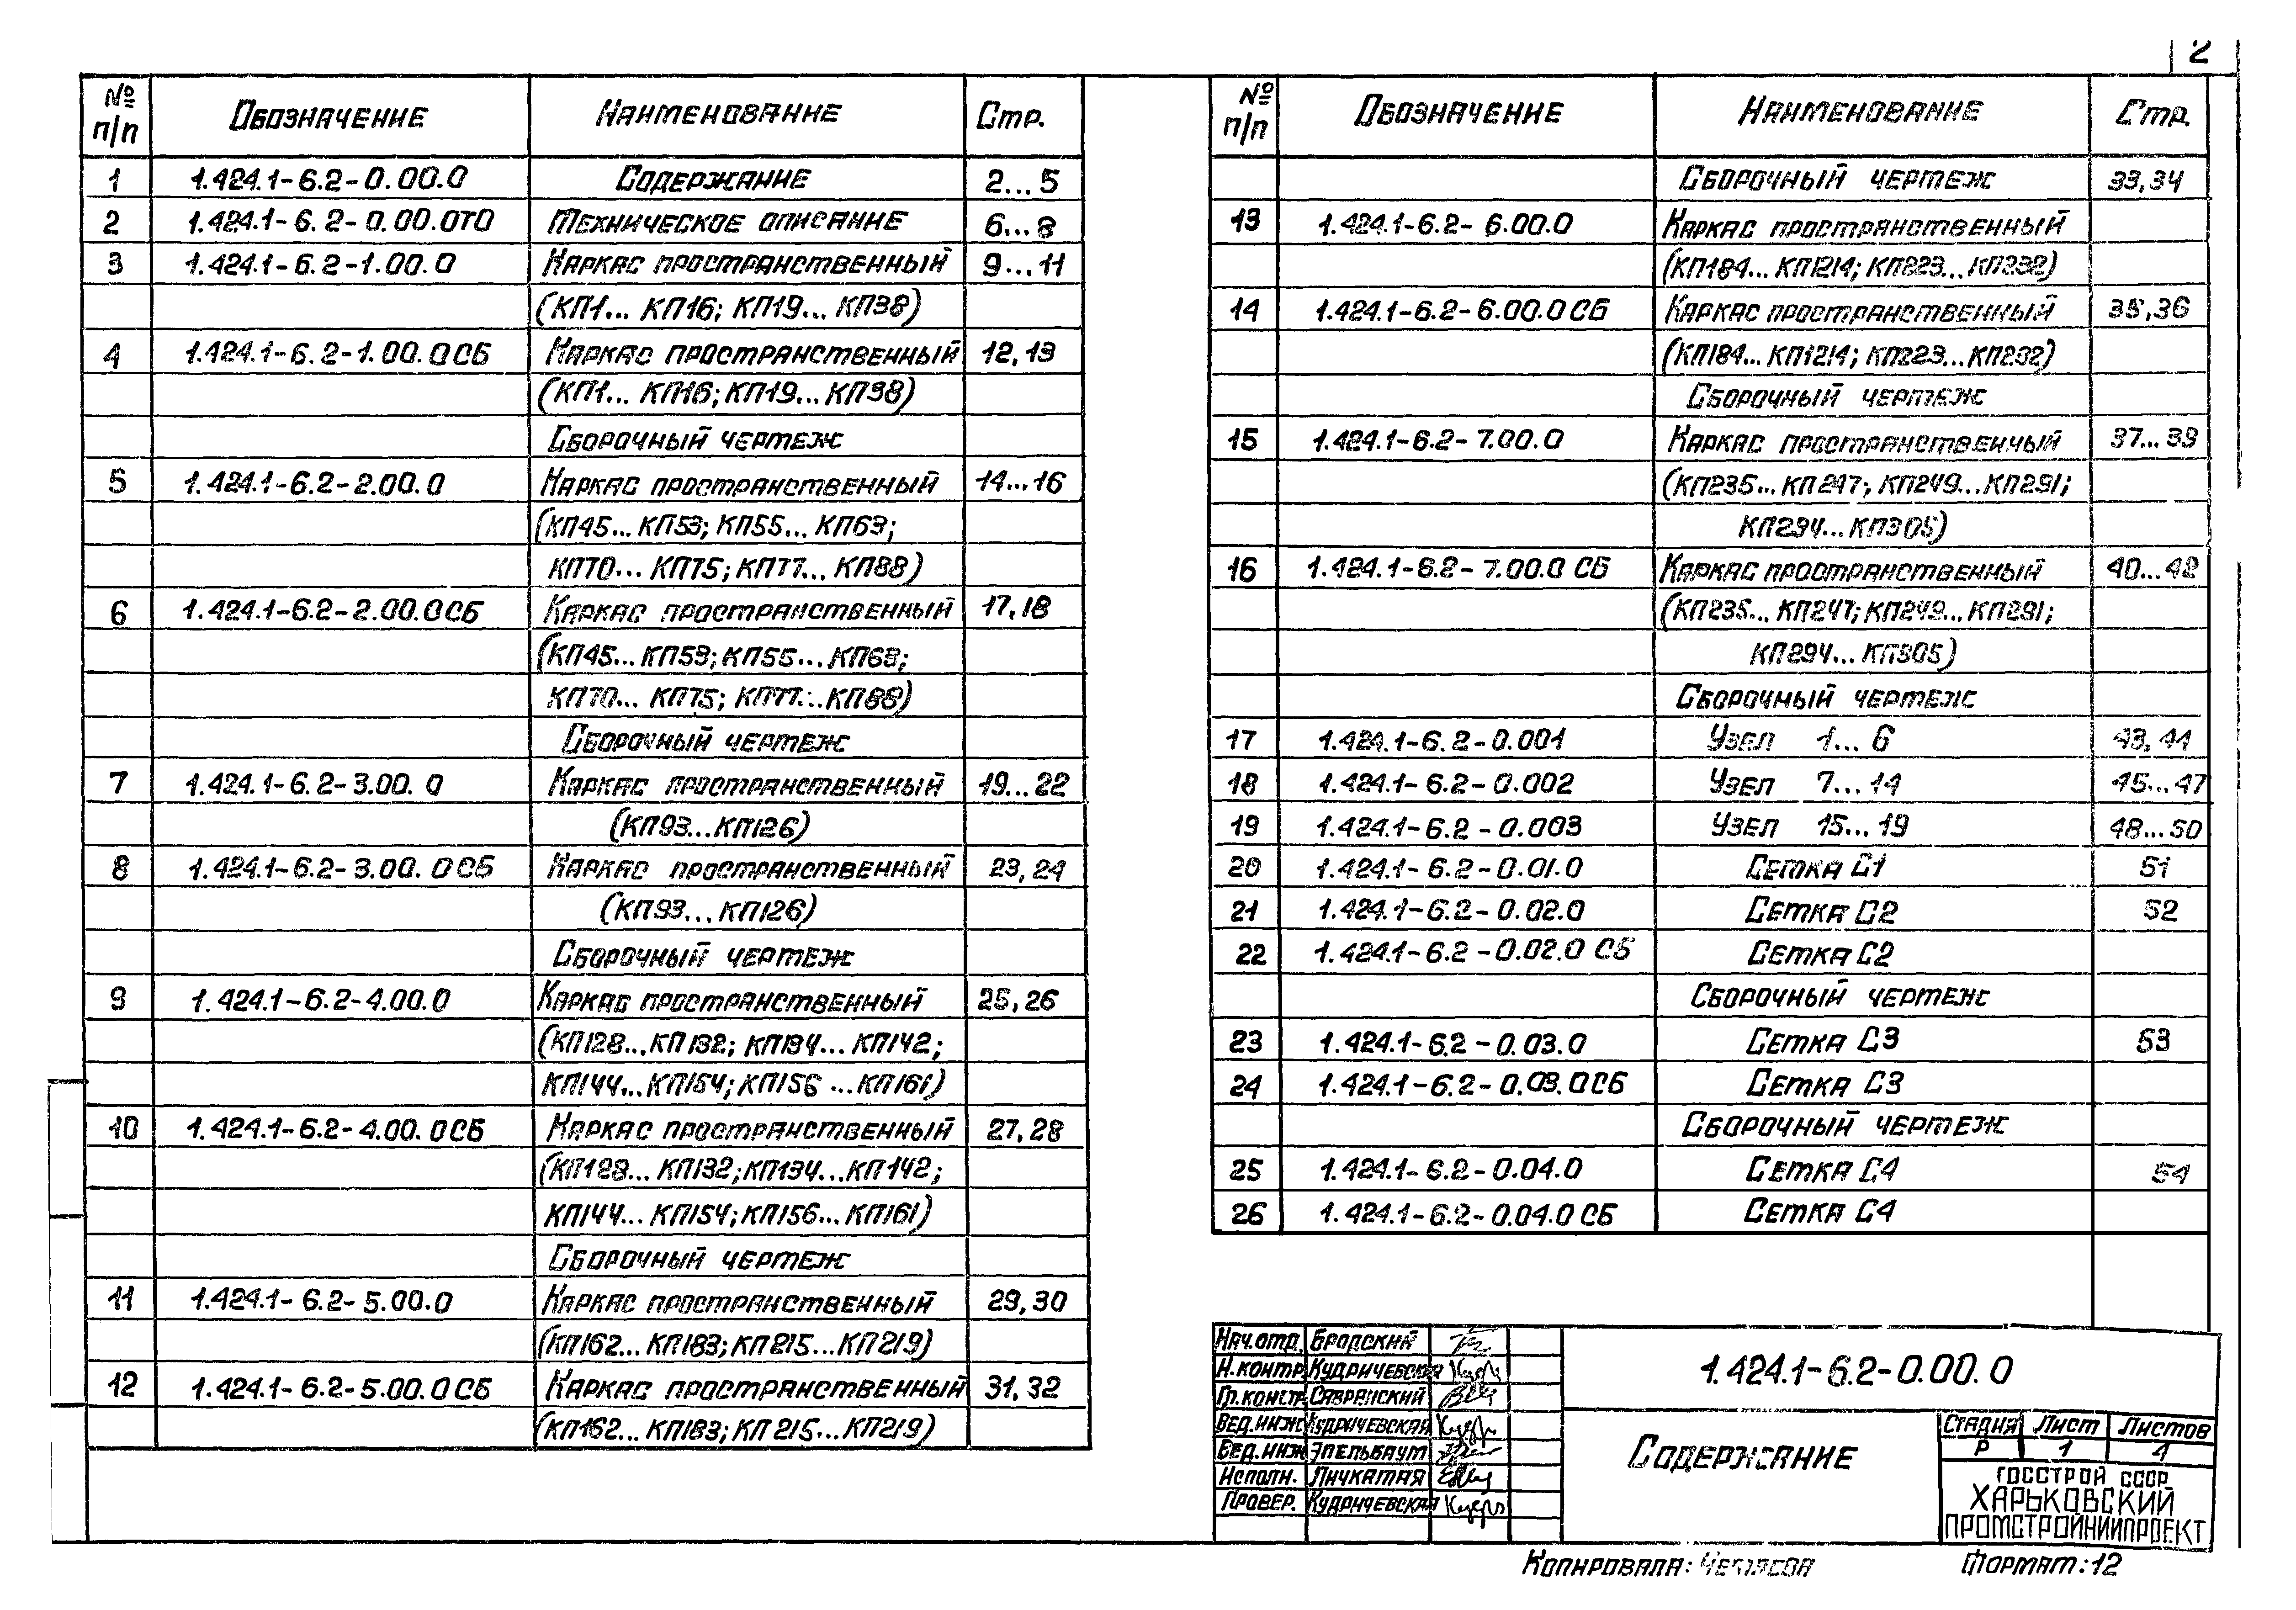 2
№ п/п Обозначение Наименование Стр.
1 1.424.1-6.2-0.00.0 Содержание 2...5
2 1.424.1-6.2-0.00.0ТО Техническое описание 6...8
3 1.424.1-6.2-1.00.0 Каркас пространственный 9...11
(КП1... КП16; КП19... КП38)
4 1.424.1-6.2-1.00.0СБ Каркас пространственный 12,13
(КП1... КП16; КП19... КП38)
Сборочный чертеж
5 1.424.1-6.2-2.00.0 Каркас пространственный 14...16
(КП45... КП53; КП55... КП63;
КП70... КП75; КП77... КП88)
6 1.424.1-6.2-2.00.0СБ Каркас пространственный 17,18
(КП45... КП53; КП55... КП63;
КП70... КП75; КП77...КП88)
Сборочный чертеж
7 1.424.1-6.2-3.00.0 Каркас пространственный 19...22
(КП93...КП126)
8 1.424.1-6.2-3.00.0СБ Каркас пространственный 23,24
(КП93...КП126)
Сборочный чертеж
9 1.424.1-6.2-4.00.0 Каркас пространственный 25,26
(КП128...КП132; КП134... КП142;
КП144...КП154; КП156...КП161)
10 1.424.1-6.2-4.00.0СБ Каркас пространственный 27,28
(КП128... КП132; КП134...КП142;
КП144... КП154; КП156... КП161)
Сборочный чертеж
11 1.424.1-6.2-5.00.0 Каркас пространственный 29,30
(КП162... КП183; КП215...КП219)
12 1.424.1-6.2-5.00.0СБ Каркас пространственный 31,32
(КП162... КП183; КП215...КП219)
№ п/п Обозначение Наименование Стр.
Сборочный чертеж 33,34
13 1.424.1-6.2-6.00.0 Каркас пространственный
(КП184... КП1214; КП223... КП232)
14 1.424.1-6.2-6.00.0СБ Каркас пространственный 35,36
(КП184... КП1214; КП223...КП232)
Сборочный чертеж
15 1.424.1-6.2-7.00.0 Каркас пространственный 37...39
(КП235... КП247; КП249...КП291;
КП294...КП305)
16 1.424.1-6.2-7.00.0 СБ Каркас пространственный 40...42
(КП235... КП247; КП249... КП291;
КП294... КП305)
Сборочный чертеж
17 1.424.1-6.2-0.001 Узел 1... 6 43,44
18 1.424.1-6.2-0.002 Узел 7...14 45...47
19 1.424.1-6.2-0.003 Узел 15...19 48...50
20 1.424.1-6.2-0.01.0 Сетка С1 51
21 1.424.1-6.2-0.02.0 Сетка С2 52
22 1.424.1-6.2-0.02.0 СБ Сетка С2
Сборочный чертеж
23 1.424.1-6.2-0.03.0 Сетка С3 53
24 1.424.1-6.2-0.03.0СБ Сетка С3
Сборочный чертеж
25 1.424.1-6.2-0.04.0 Сетка С4 54
26 1.424.1-6.2-0.04.0 СБ Сетка С4
Нач.отд. Бродский
Н.контр Кудричевская
Гл.констр Савранский
Вед.инж Кудричевская
Вед.инж Эпельбаум
Исполн. Личкатая
Провер. Кудричевская
1.424.1-6.2-0.00.0
Содержание
Стадия Лист Листов
Р 1 4
ГОССТРОЙ СССР
ХАРЬКОВСКИЙ
ПРОМСТРОЙНИИПРОЕКТ
Копировала: Формат: 12